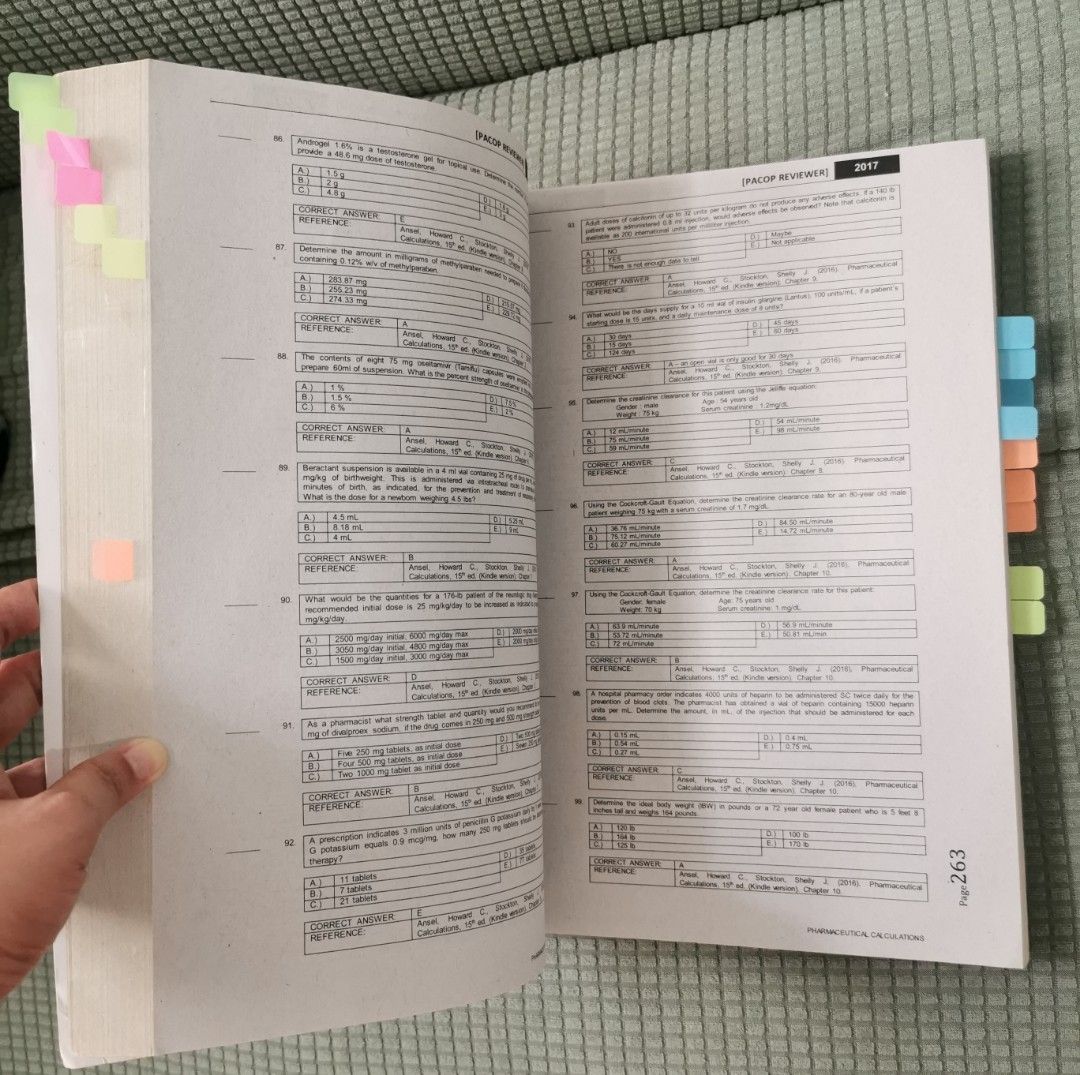 [PACOP REVIEWER
86.
Androgel 1.6% is a testosterone gel for topical use. Determine the
provide a 48.6 mg dose of testosterone.
A.) 1.5 g
B.) 2 g
C.) 4.8 g
D.)
E.)
CORRECT ANSWER: E
REFERENCE: Ansel, Howard C., Stockton, Shelly
Calculations, 15th ed. (Kindle version), Chapter
87.
Determine the amount in milligrams of methylparaben needed to prepare
containing 0.12% w/v of methylparaben.
A.) 283.87 mg
B.) 255.23 mg
C.) 274.33 mg
D.)
E.)
CORRECT ANSWER: A
REFERENCE: Ansel, Howard C., Stockton, Shelly
Calculations, 15th ed. (Kindle version), Chapter
88.
The contents of eight 75 mg oseltamivir (Tamiflu) capsules were
prepare 60ml of suspension. What is the percent strength of oseltamivir
A.) 1 %
B.) 1.5 %
C.) 6 %
D.) 7.5%
E.) 2%
CORRECT ANSWER: A
REFERENCE: Ansel, Howard C., Stockton, Shelly J.
Calculations, 15th ed. (Kindle version), Chapter
89.
Beractant suspension is available in a 4 ml vial containing 25 mg of drug per
mg/kg of birthweight. This is administered via intratracheal route
minutes of birth, as indicated, for the prevention and treatment of
What is the dose for a newborn weighing 4.5 lbs?
A.) 4.5 mL
B.) 8.18 mL
C.) 4 mL
D.) 5.25 mL
E.) 9 mL
CORRECT ANSWER: B
REFERENCE: Ansel, Howard C., Stockton, Shelly J.
Calculations, 15th ed. (Kindle version), Chapter
90.
What would be the quantities for a 176-lb patient of the neurologic drug
recommended initial dose is 25 mg/kg/day to be increased as indicated to
mg/kg/day.
A.) 2500 mg/day initial, 6000 mg/day max
B.) 3050 mg/day initial, 4800 mg/day max
C.) 1500 mg/day initial, 3000 mg/day max
D.) 2000 mg/day
E.) 2000 mg/day
CORRECT ANSWER: D
REFERENCE: Ansel, Howard C., Stockton, Shelly
Calculations, 15th ed. (Kindle version), Chapter
91.
As a pharmacist what strength tablet and quantity would you recommend
mg of divalproex sodium, if the drug comes in 250 mg and 500 mg strength
A.) Five 250 mg tablets, as initial dose
B.) Four 500 mg tablets, as initial dose
C.) Two 1000 mg tablet as initial dose
D.) Two 500 mg
E.) Seven
CORRECT ANSWER: B
REFERENCE: Ansel, Howard C., Stockton, Shelly J.
Calculations, 15th ed. (Kindle version), Chapter
92.
A prescription indicates 3 million units of penicillin G potassium daily
G potassium equals 0.9 mcg/mg, how many 250 mg tablets should be
therapy?
A.) 11 tablets
B.) 7 tablets
C.) 21 tablets
D.) 35 tablets
E.) 77 tablets
CORRECT ANSWER: E
REFERENCE: Ansel, Howard C., Stockton, Shelly
Calculations, 15th ed. (Kindle version), Chapter
[PACOP REVIEWER] 2017
93.
Adult doses of calcitonin of up to 32 units per kilogram do not produce any adverse effects. If a 140 lb
patient were administered 0.8 ml injection, would adverse effects be observed? Note that calcitonin is
available as 200 international units per milliliter injection.
A.) NO
B.) YES
C.) There is not enough data to tell
D.) Maybe
E.) Not applicable
CORRECT ANSWER: A
REFERENCE: Ansel, Howard C., Stockton, Shelly J. (2016). Pharmaceutical
Calculations, 15th ed. (Kindle version), Chapter 9.
94.
What would be the days supply for a 10 ml vial of insulin glargine (Lantus), 100 units/mL, if a patient's
starting dose is 15 units, and a daily maintenance dose of 8 units?
A.) 30 days
B.) 15 days
C.) 124 days
D.) 45 days
E.) 60 days
CORRECT ANSWER: A – an open vial is only good for 30 days
REFERENCE: Ansel, Howard C., Stockton, Shelly J. (2016). Pharmaceutical
Calculations, 15th ed. (Kindle version), Chapter 9.
95.
Determine the creatinine clearance for this patient using the Jelliffe equation:
Gender : male Age : 54 years old
Weight : 75 kg Serum creatinine : 1.2mg/dL
A.) 12 mL/minute
B.) 75 mL/minute
C.) 59 mL/minute
D.) 54 mL/minute
E.) 98 mL/minute
CORRECT ANSWER: C
REFERENCE: Ansel, Howard C., Stockton, Shelly J. (2016). Pharmaceutical
Calculations, 15th ed. (Kindle version), Chapter 8.
96.
Using the Cockcroft-Gault Equation, determine the creatinine clearance rate for an 80-year old male
patient weighing 75 kg with a serum creatinine of 1.7 mg/dL.
A.) 36.76 mL/minute
B.) 75.12 mL/minute
C.) 60.27 mL/minute
D.) 84.50 mL/minute
E.) 14.72 mL/minute
CORRECT ANSWER: A
REFERENCE: Ansel, Howard C., Stockton, Shelly J. (2016). Pharmaceutical
Calculations, 15th ed. (Kindle version), Chapter 10.
97.
Using the Cockcroft-Gault Equation, determine the creatinine clearance rate for this patient:
Gender: female Age: 75 years old
Weight: 70 kg Serum creatinine: 1 mg/dL
A.) 63.9 mL/minute
B.) 53.72 mL/minute
C.) 72 mL/minute
D.) 56.9 mL/minute
E.) 50.81 mL/min
CORRECT ANSWER: B
REFERENCE: Ansel, Howard C., Stockton, Shelly J. (2016). Pharmaceutical
Calculations, 15th ed. (Kindle version), Chapter 10.
98.
A hospital pharmacy order indicates 4000 units of heparin to be administered SC twice daily for the
prevention of blood clots. The pharmacist has obtained a vial of heparin containing 15000 heparin
units per mL. Determine the amount, in mL, of the injection that should be administered for each
dose.
A.) 0.15 mL
B.) 0.54 mL
C.) 0.27 mL
D.) 0.4 mL
E.) 0.75 mL
CORRECT ANSWER: C
REFERENCE: Ansel, Howard C., Stockton, Shelly J. (2016). Pharmaceutical
Calculations, 15th ed. (Kindle version), Chapter 10.
99.
Determine the ideal body weight (IBW) in pounds or a 72 year old female patient who is 5 feet 8
inches tall and weighs 164 pounds.
A.) 120 lb
B.) 164 lb
C.) 125 lb
D.) 100 lb
E.) 170 lb
CORRECT ANSWER: A
REFERENCE: Ansel, Howard C., Stockton, Shelly J. (2016). Pharmaceutical
Calculations, 15th ed. (Kindle version), Chapter 10.
Page 263
PHARMACEUTICAL CALCULATIONS